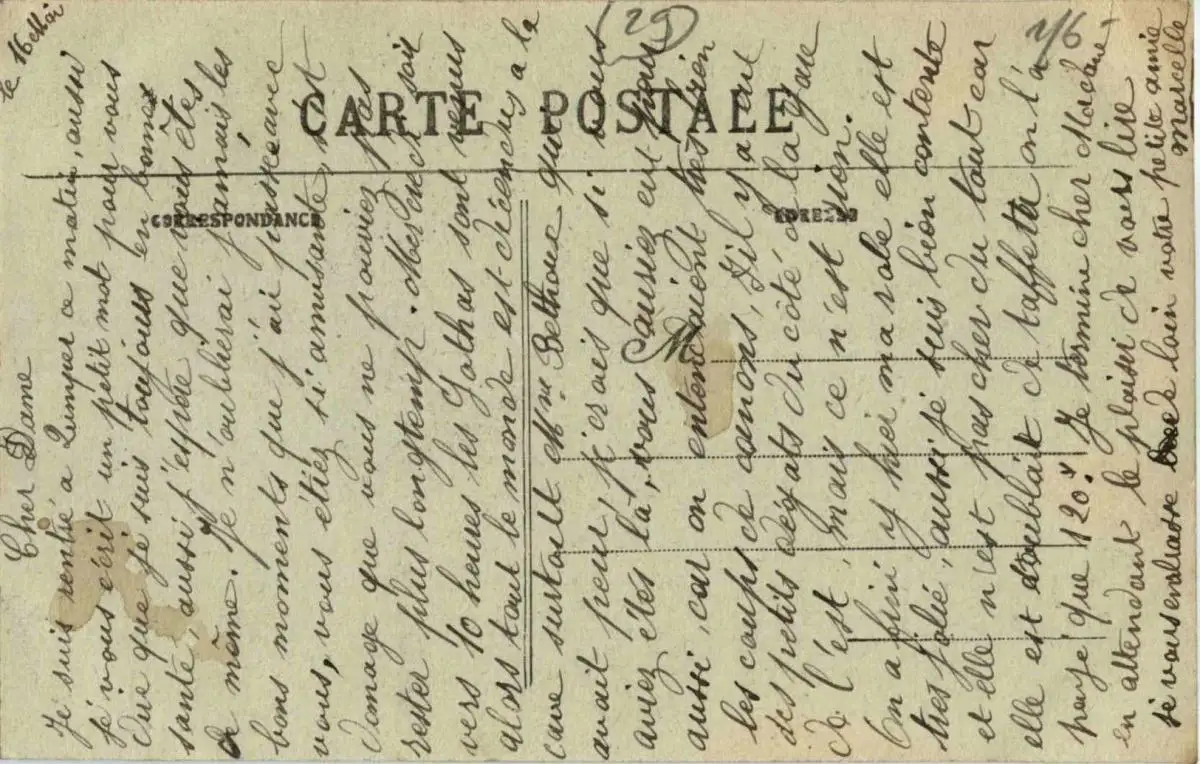 le 16 Mai
(29)
1/6
CARTE POSTALE
CORRESPONDANCE
ADRESSE
Cher Dame
Je suis rentré a Quimper ce matin, aussi
je vous écrit un petit mot pour vous
dire que je suis toujours en bonnes
santé, aussi j'espère que vous êtes
de même. Je n'oublierai jamais les
bons moments que j'ai passé avec
vous, vous étiez si amusante, c'est
domage que vous ne pouviez pas
rester plus longstemp. Mercredi soir
vers 10 heures les Gothas sont venus
alors tout le monde est décendres a la
cave surtout Mme Bethoue qui
avait peur j'crois que si vous
aviez étés là, vous auriez eut peur
aussi, car on entend très bien
les coups de canons, Il y a eut
des petits dégats du côté de la Gare
de l'est, mais ce n'est rien.
On a fini y hier ma robe elle est
tres jolie, aussi je suis bien contente
et elle n'est pas cher du tout car
elle est doublait de taffeta on l'a
payé que 120f. Je termine cher Madame
en attendant le plaisir de vous lire
je vous embrasse de loin votre petite amie
Marcelle